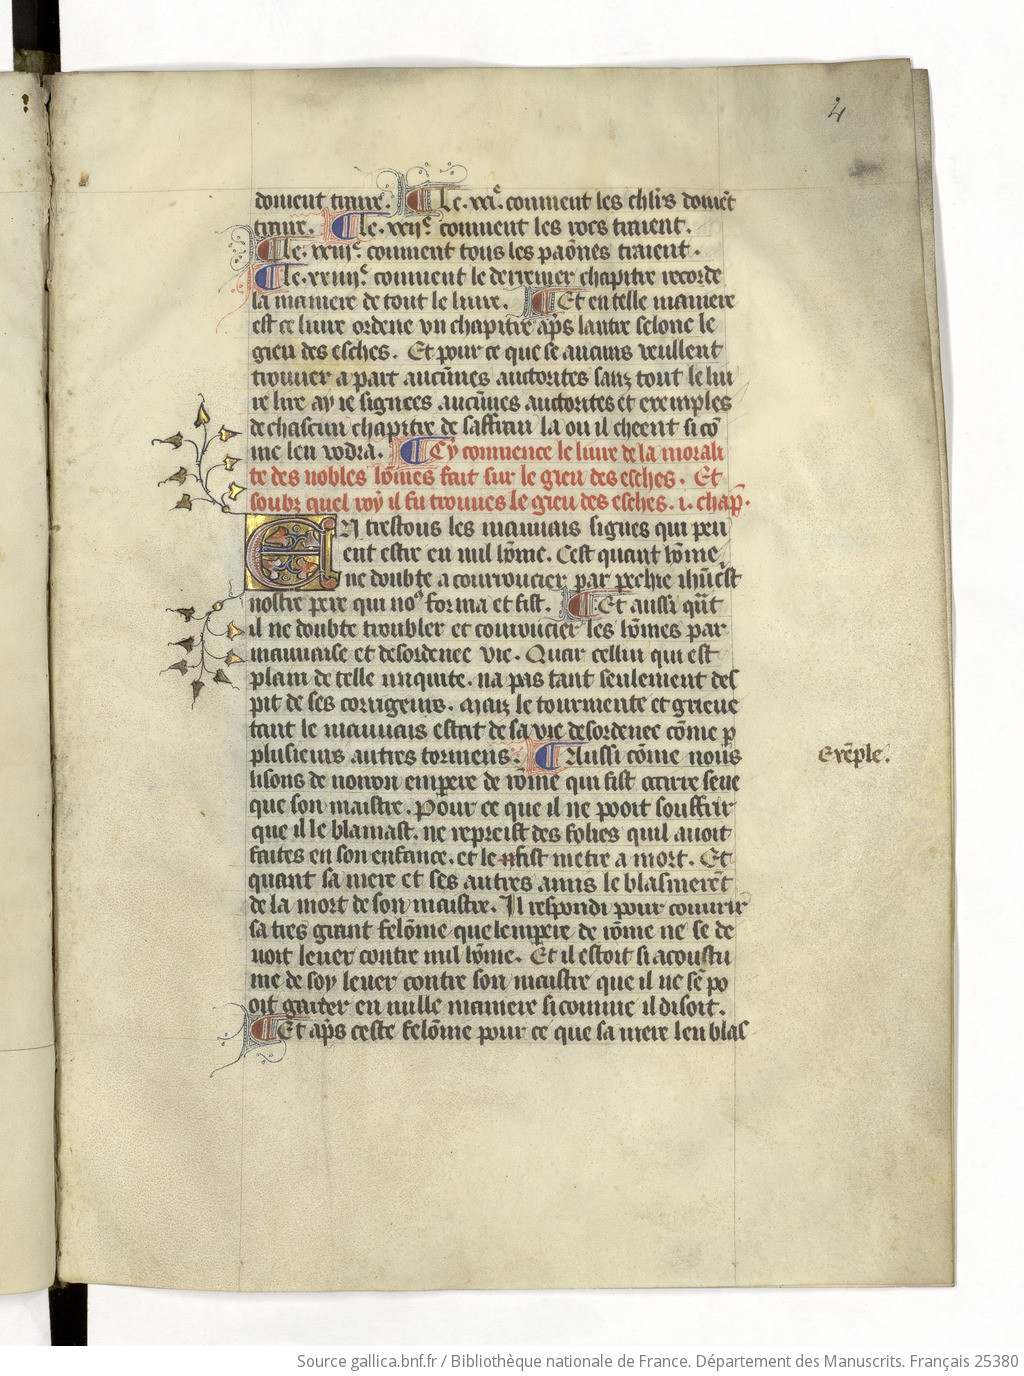 4
doivent traire. ¶ Le .xxi.e comment les chl'rs doivēt
traire. ¶ Le .xxii.e comment les rocs traient.
¶ Le .xxiii.e comment tous les paōnes traient.
¶ Le .xxiiii.e comment le derrenier chapitre recorde
la maniere de tout le livre. ¶ Et en telle maniere
est ce livre ordene un chapitre ap̄s lautre selonc le
gieu des esches. Et pour ce que se aucuns veullent
trouver a part aucūnes auctorites sanz tout le liv
re lire ay ie signees aucūnes auctorites et exemples
de chascun chapitre de saffran la ou il cheent si cō
me len vodra. ¶ Cy commence le livre de la morali
te des nobles hōmes fait sur le gieu des esches. Et
soubz quel roy il fu trouves le gieu des esches. i. chap̄.
EN trestous les mauvais signes qui peu
ent estre en nul hōme. Cest quant hōme
ne doubte a courroucier par pechie ihūcst
nostre pere qui no9 forma et fist. ¶ Et aussi qūt
il ne doubte troubler et courroucier les hōmes par
mauvaise et desordenee vie. Quar cellui qui est
plain de telle iniquite. na pas tant seulement des
pit de ses corrigeurs. Maiz le tourmente et grieve
tant le mauvais estat de sa vie desordenee cōme p̄
plusieurs autres tormens. ¶ Aussi cōme nous
lisons de noiron empere de rōme qui fist ocirre sene
que son maistre. Pour ce que il ne pooit souffrir
que il le blamast. ne repreist des folies quil avoit
faites en son enfance. et le fist metre a mort. Et
quant sa mere et ses autres amis le blasmerēt
de la mort de son maistre. Il respondi pour couvrir
sa tres grant felōnie que lempere de rōme ne se de
voit lever contre nul hōme. Et il estoit si acoustu
me de soy lever contre son maistre que il ne sē po
oit garder en nulle maniere si comme il disoit.
¶ Et ap̄s ceste felōnie pour ce que sa mere len blas
exēple.
Source gallica.bnf.fr / Bibliothèque nationale de France. Département des Manuscrits. Français 25380